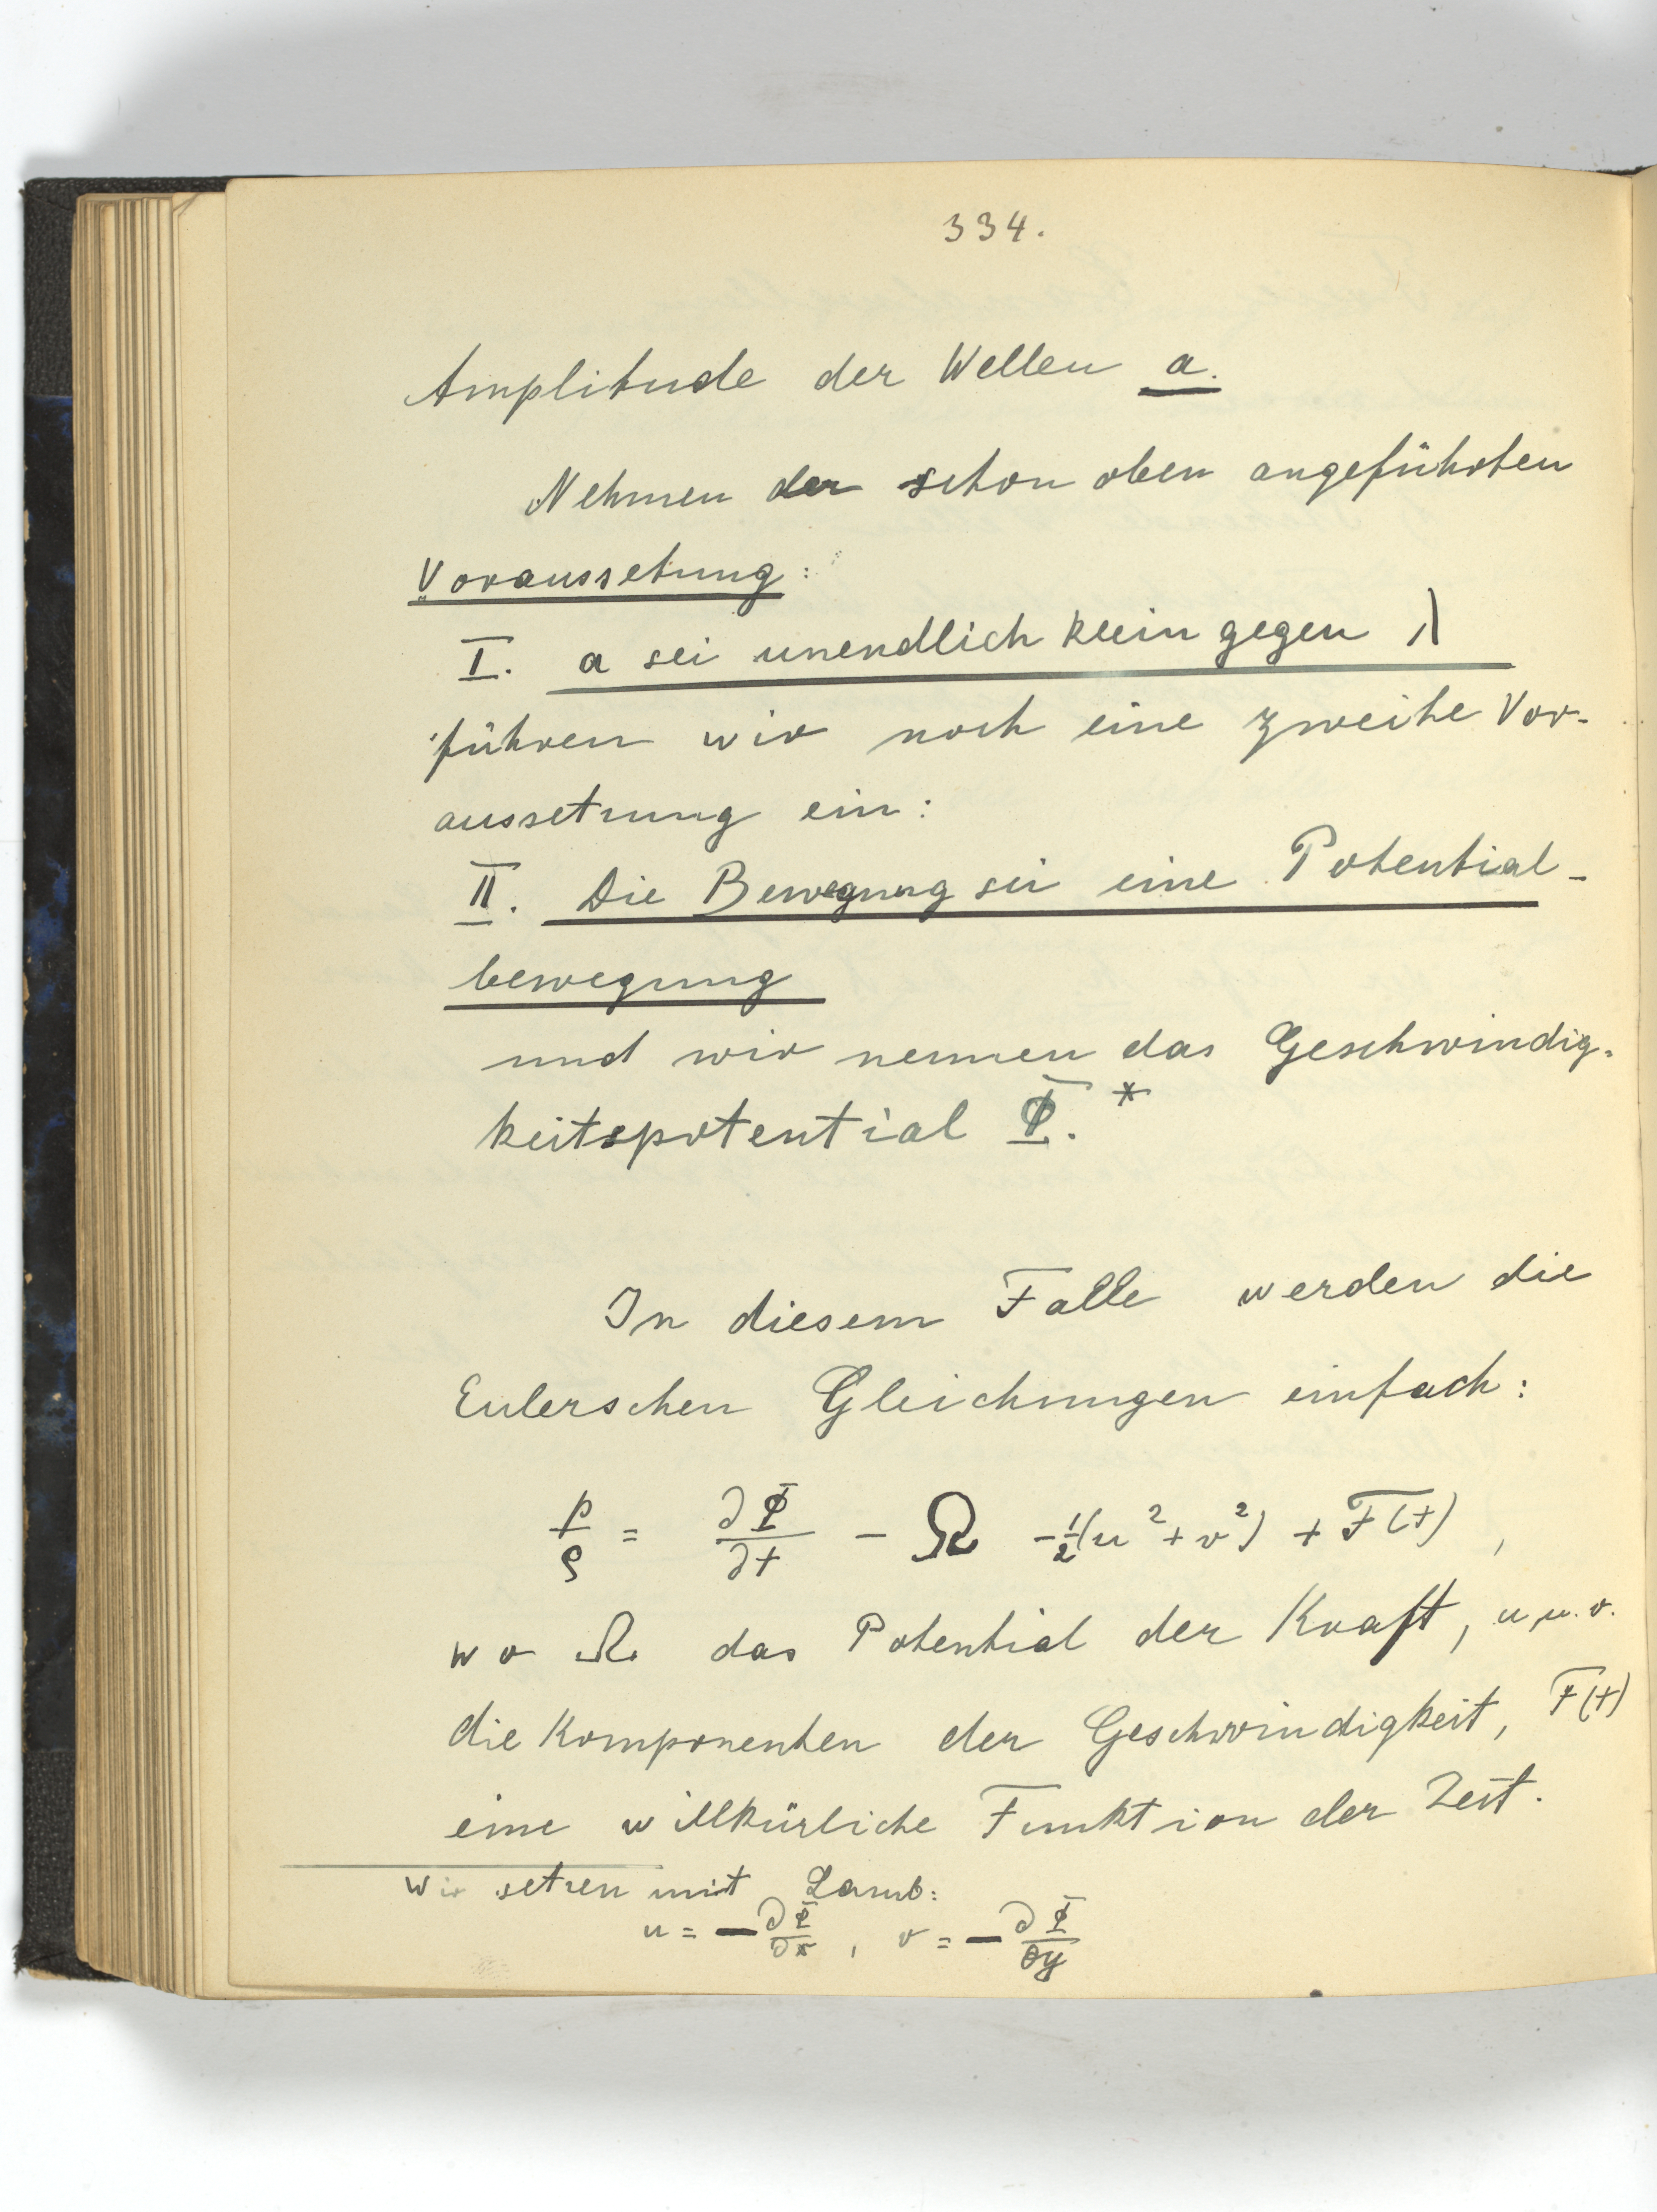 334.
Amplitude der Wellen a.
Nehmen der schon oben angeführten
Voraussetung:
I. a sei unendlich klein gegen λ
führen wir noch eine zweite Vor-
aussetzung ein:
II. Die Bewegung sei eine Potential-
bewegung
und wir nennen das Geschwindig-
keitspotential Φ.*
In diesem Falle werden die
Eulerschen Gleichungen einfach:
p/ρ = ∂Φ/∂t - Ω - 1/2(u² + v²) + F(t),
wo Ω das Potential der Kraft, u u. v.
die Komponenten der Geschwindigkeit, F(t)
eine willkürliche Funktion der Zeit.
Wir setzen mit Lamb:
u = -∂Φ/∂x, v = -∂Φ/∂y